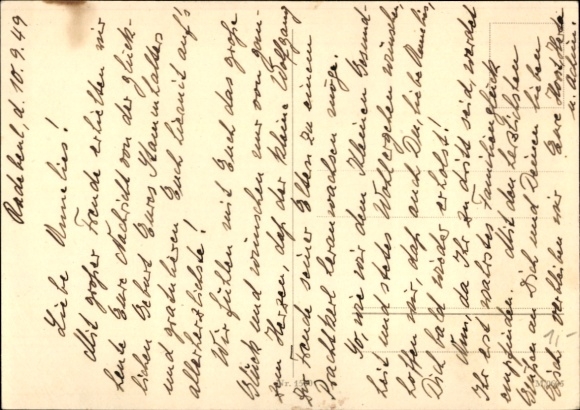 Radebeul, d. 10.9.49
Liebe Annelies!
Mit großer Freude erhielten wir
heute Eure Nachricht von der glück-
lichen Geburt Eures Stammhalters
und gratulieren Euch hiermit auf's
allerherzlichste!
Wir fühlen mit Euch das große
Glück und wünschen nur von gan-
zem Herzen, daß der kleine Wolfgang
zur Freude seiner Eltern zu einem
Prachtkerl heranwachsen möge.
So, wie wir dem Kleinen Gesund-
heit und stetes Wohlergehen wünschen,
hoffen wir, daß auch Du, liebe Annelies,
Dich bald wieder erholst!
Nun, da Ihr zu dritt seid, werdet
Ihr erst wahres Familienglück
empfinden. Mit den herzlichsten
Grüßen an Dich und Deinen lieben
verbleiben wir Eure
u.
1,-
Nr.